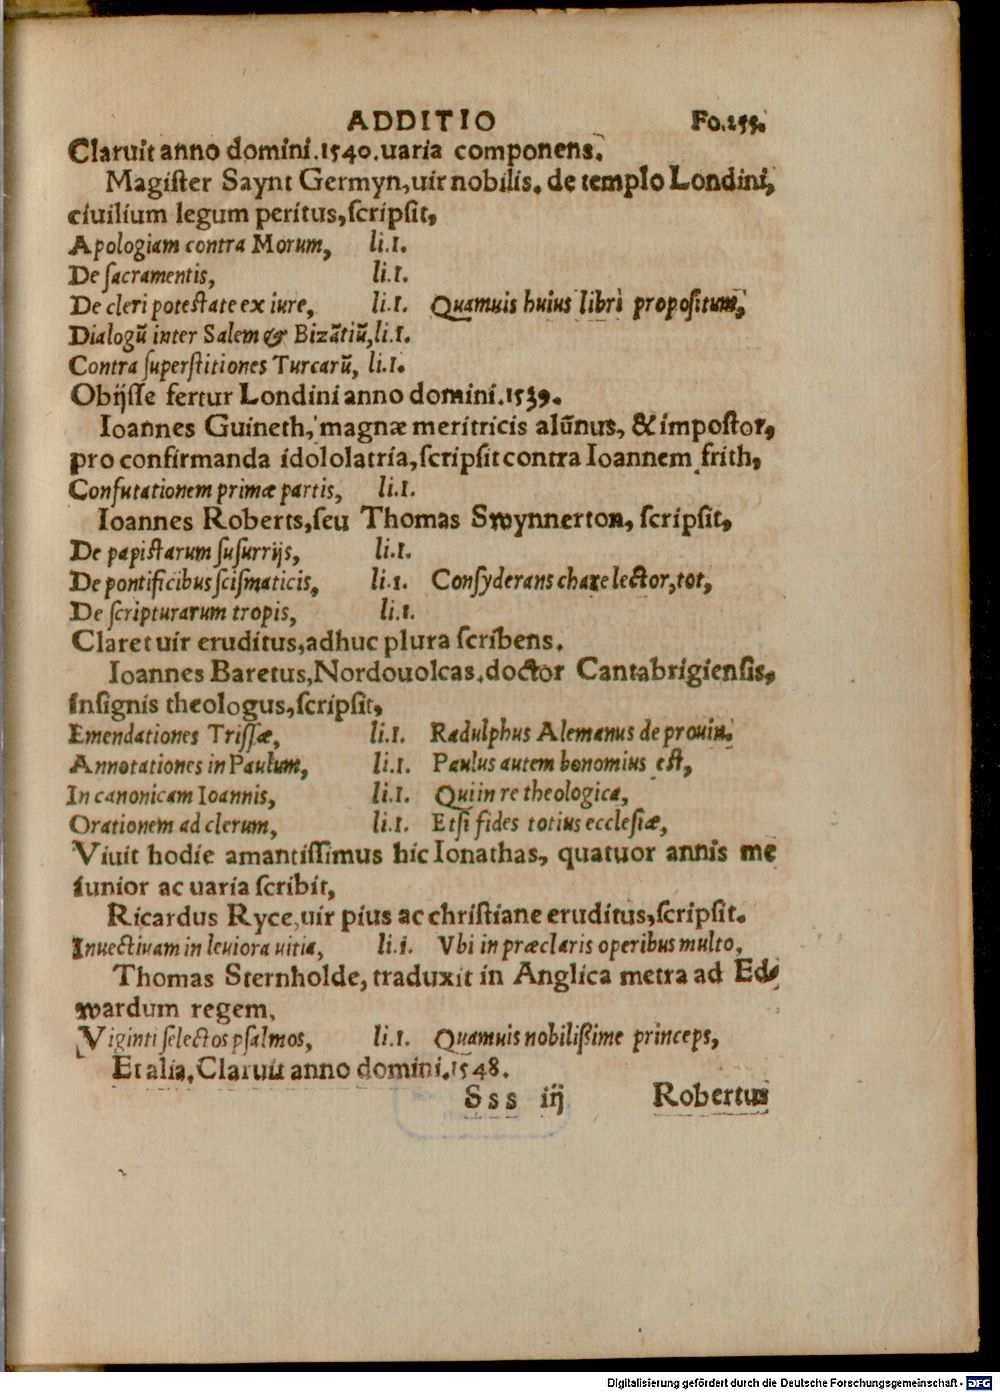 ADDITIO Fo.255.
Claruit anno domini.1540.uaria componens.
Magiſter Saynt Germyn,uir nobilis. de templo Londini,
ciuilium legum peritus,ſcripſit,
Apologiam contra Morum, li.1.
De ſacramentis, li.1.
De cleri poteſtate ex iure, li.1. Quamuis huius libri propoſitum,
Dialogū inter Salem & Bizātiū,li.1.
Contra ſuperſtitiones Turcarū, li.1.
Obijſſe fertur Londini anno domini.1539.
Ioannes Guineth, magnæ meritricis alūnus, & impoſtor,
pro confirmanda idololatria,ſcripſit contra Ioannem frith,
Confutationem primæ partis, li.1.
Ioannes Roberts,ſeu Thomas Swynnerton, ſcripſit,
De papiſtarum ſuſurrijs, li.1.
De pontificibus ſciſmaticis, li.1. Conſyderans chare lector,tot,
De ſcripturarum tropis, li.1.
Claret uir eruditus,adhuc plura ſcribens.
Ioannes Baretus,Nordouolcas.doctor Cantabrigienſis,
inſignis theologus,ſcripſit,
Emendationes Triſſæ, li.1. Radulphus Alemanus de prouin.
Annotationes in Paulum, li.1. Paulus autem bonomius eſt,
In canonicam Ioannis, li.1. Qui in re theologica,
Orationem ad clerum, li.1. Etſi fides totius eccleſiæ,
Viuit hodie amantiſſimus hic Ionathas, quatuor annis me
iunior ac uaria ſcribit,
Ricardus Ryce,uir pius ac chriſtiane eruditus,ſcripſit.
Inuectiuam in leuiora uitia, li.i. Vbi in præclaris operibus multo,
Thomas Sternholde, traduxit in Anglica metra ad Ed-
wardum regem,
Viginti ſelectos pſalmos, li.1. Quamuis nobiliſſime princeps,
Et alia. Claruit anno domini.1548.
Sss iij Robertus
Digitalisierung gefördert durch die Deutsche Forschungsgemeinschaft - DFG